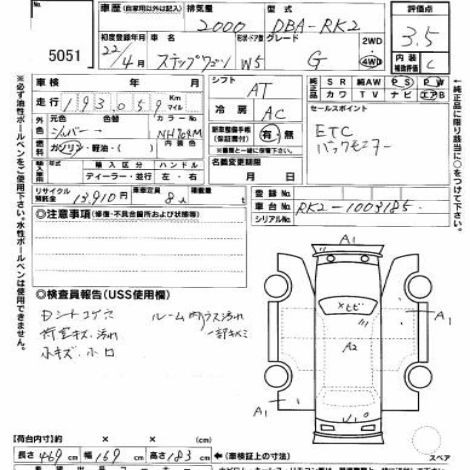 車歴 (自家用以外は記入) 排気量 2000 型式 DBA-RK2 評価点 3.5
5051
初度登録年月 22/4 月 ステップワゴン 形状・ドア数 W5 グレード G 2WD 4WD 内装 C 補助評価
車検 年 月 シフト AT
純正品 SR 純AW PS PW
カワ TV ナビ エアB
走行 193,059 Km マイル
冷房 AC
セールスポイント
元色 カラー No.
シルバー NH704M
色替 内装色
新車整備手帳 (保証書付) 有・無
ETC
バックモニター
燃料 ガソリン・軽油・( )
※整備手帳は後日一緒にご提出下さい
輸入区分 ハンドル
ディーラー・並行 左・右
名義変更期限
月 日
リサイクル預託金 13,910円 乗車定員 8人 積載量 t
登録 No.
車台 No. RK2-1003185
シリアル No.
◎注意事項 (修復・不具合箇所および状態等)
◎検査員報告 (USS使用欄)
フロントコゲ穴 ルーム内ウス汚れ
荷室キズ、汚れ 一部キズミ
小キズ・小凹
A1
A1
×ヒビ
A2
A1
U1
スペア
【荷台内寸】約 × × cm
長さ 469 cm 幅 169 cm 高さ 183 cm ←(車検証上の寸法)
※必ず油性ボールペンをご使用下さい。水性ボールペンは使用できません。
←純正品に限り該当に○をつけて下さい。